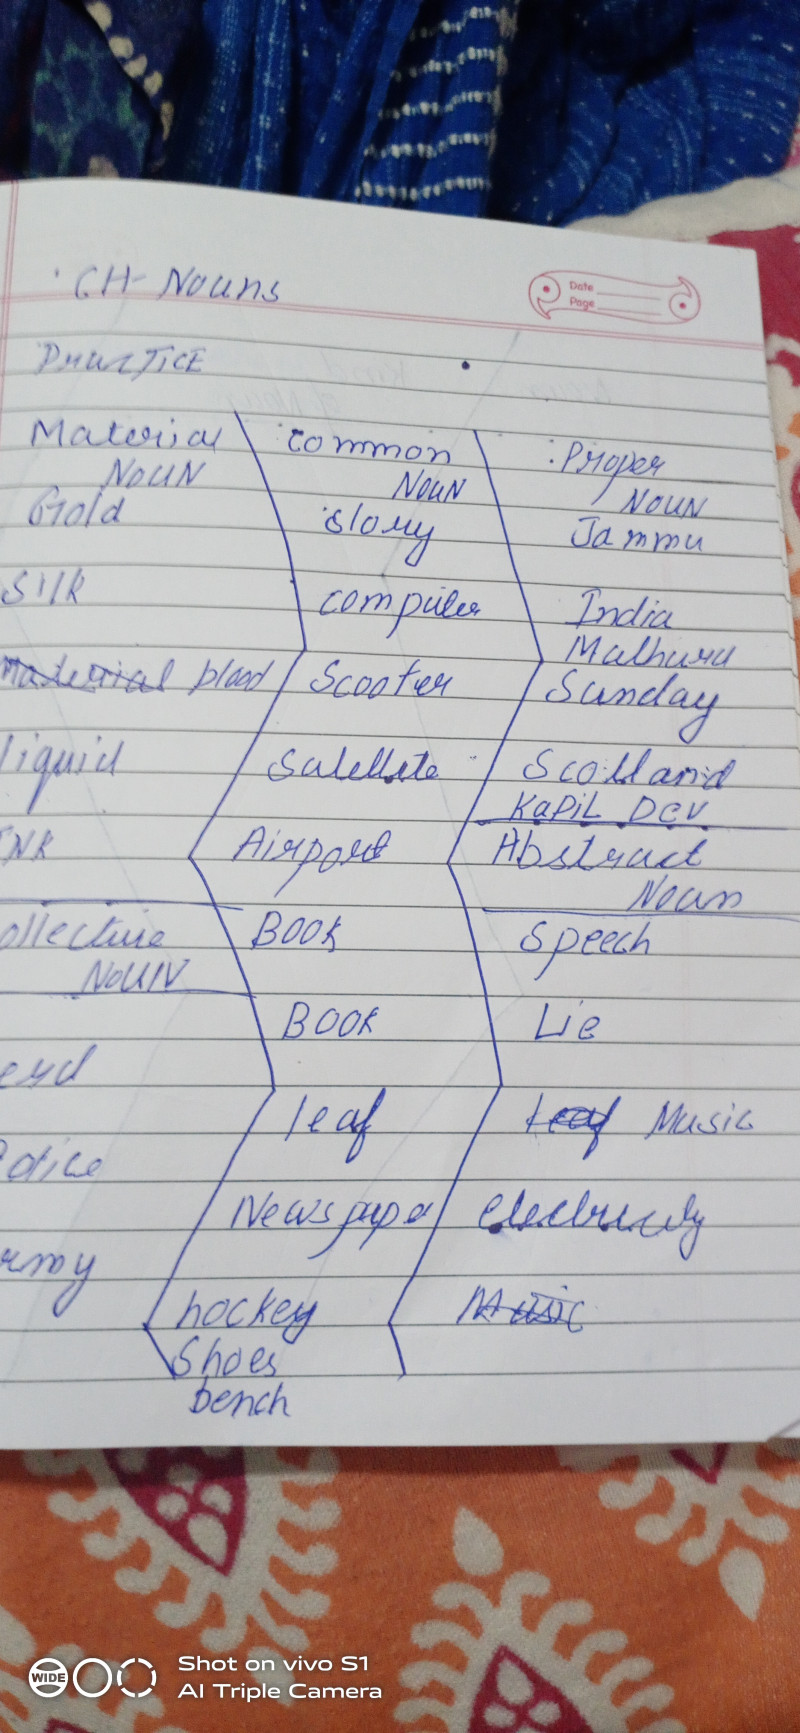 CH- Nouns
Date
Page
PRACTICE
Material
NOUN
Gold
Silk
Material blood
liquid
INK
ollective
NOUN
erd
Police
rmy
common
NOUN
story
computer
Scooter
Satellite
Airport
Book
Book
leaf
Newspaper
hockey
Shoes
bench
Proper
NOUN
Jammu
India
Mathura
Sunday
Scotland
Kapil Dev
Abstract
Noun
Speech
Lie
leaf Music
electricity
Music
WIDE
Shot on vivo S1
AI Triple Camera